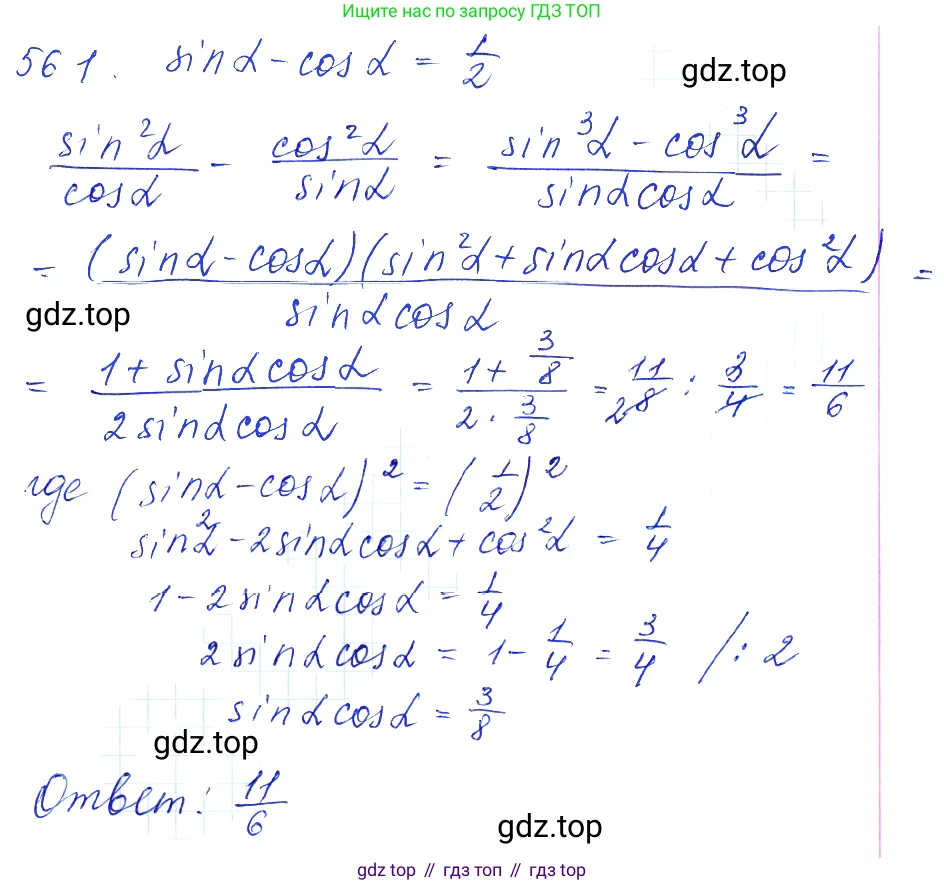 Ищите нас по запросу ГДЗ ТОП
561. sinα - cosα = 1/2
gdz.top
sin²α/cosα - cos²α/sinα = (sin³α - cos³α)/(sinαcosα) =
= (sinα - cosα)(sin²α + sinαcosα + cos²α)/(sinαcosα) =
gdz.top
= (1 + sinαcosα)/(2sinαcosα) = (1 + 3/8)/(2 · 3/8) = 11/8 : 3/4 = 11/6
где (sinα - cosα)² = (1/2)²
sin²α - 2sinαcosα + cos²α = 1/4
1 - 2sinαcosα = 1/4
2sinαcosα = 1 - 1/4 = 3/4 /: 2
sinαcosα = 3/8
gdz.top
Ответ: 11/6
gdz.top
gdz top // гдз топ // gdz top